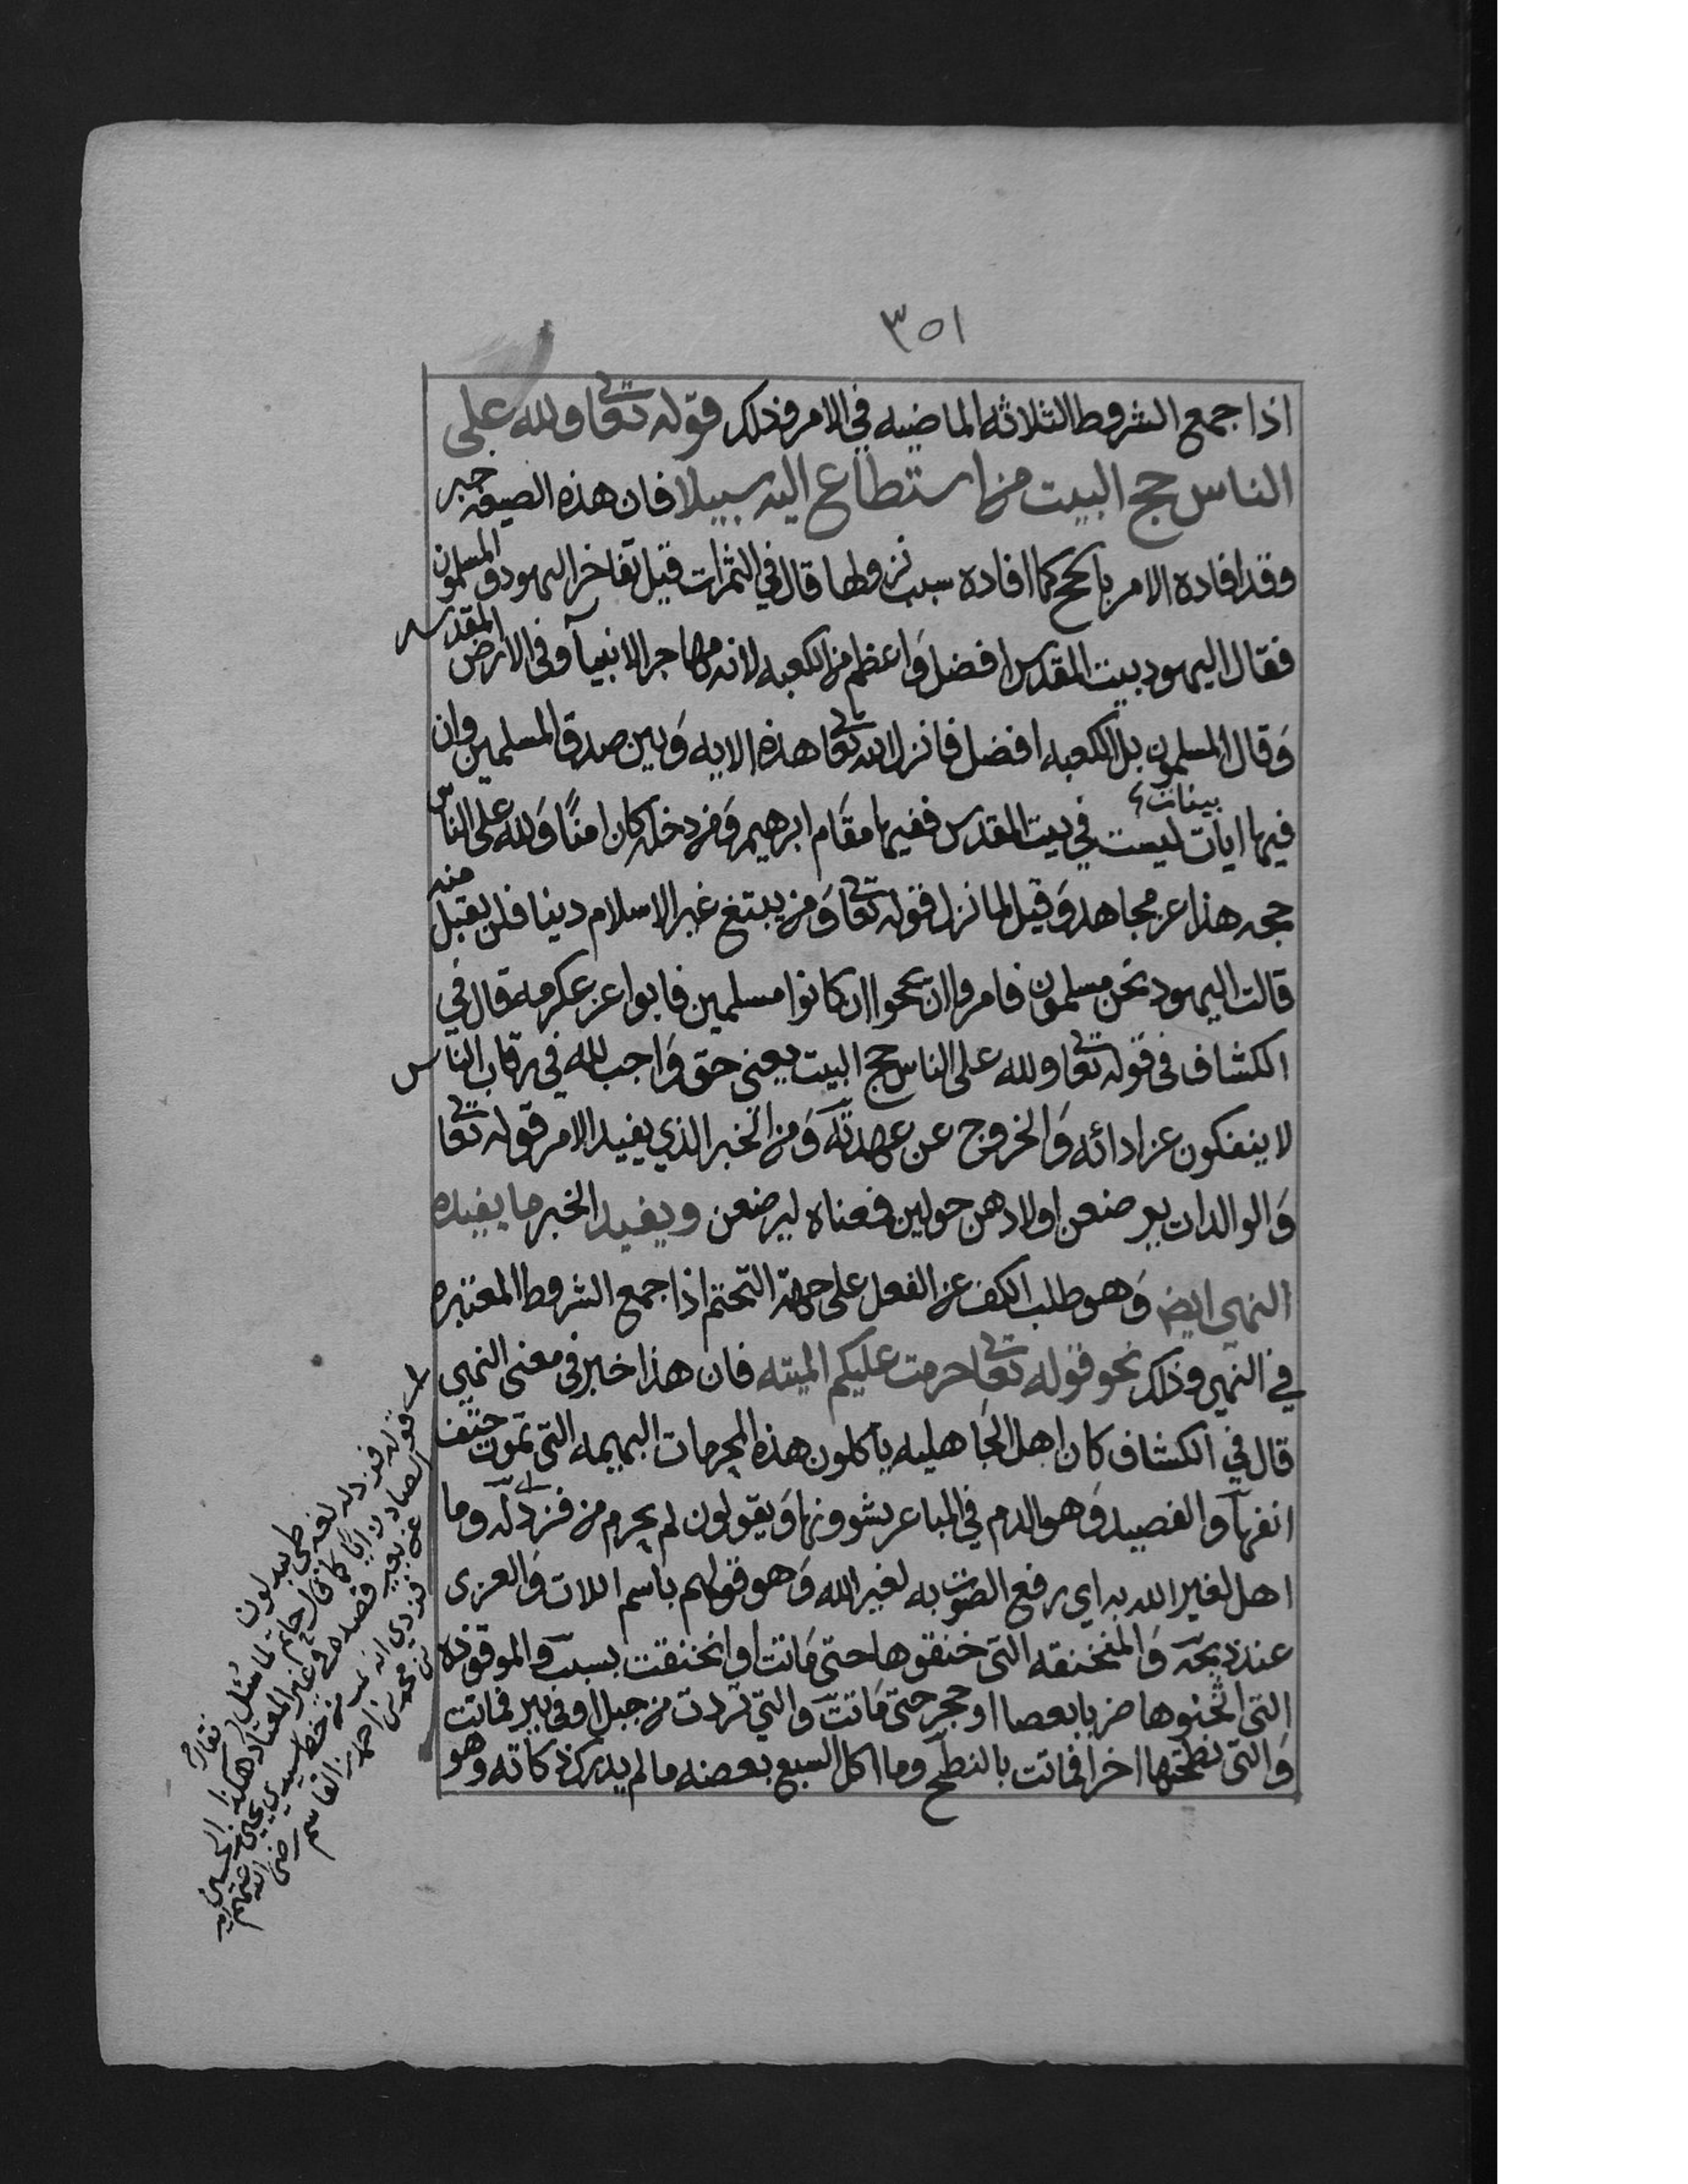 ٣٥١
اذا جمع الشروط الثلاثه الماضيه في الامر وذلك قوله تعالى ولله على
الناس حج البيت من استطاع اليه سبيلا فان هذه الصيغه خبر
وقد افاده الامر بالحج كما افاده سبب نزولها قال في الثمرات قيل تفاخر اليهود والمسلمون
فقال اليهود بيت المقدس افضل واعظم من الكعبه لانه مهاجر الانبيآ وفي الارض المقدسه
وقال المسلمون بل الكعبه افضل فانزل الله تعالى هذه الايه وبين صدق المسلمين وان
فيها ايات بينات ليست في بيت المقدس ففيها مقام ابرهيم ومن دخله كان امنًا ولله على الناس
حجه هذا عن مجاهد وقيل لما نزل قوله تعالى ومن يبتغ غير الاسلام دينا فلن يقبل منه
قالت اليهود نحن مسلمون فامروا ان يحجوا ان كانوا مسلمين فابوا عن عكرمه قال في
الكشاف في قوله تعالى ولله على الناس حج البيت يعني حق واجب لله في رقاب الناس
لا ينفكون عن ادائه والخروج عن عهدته ومن الخبر الذي يفيد الامر قوله تعالى
والوالدات يرضعن اولادهن حولين فمعناه ليرضعن ويفيد الخبر ما يفيده
النهي ايضا وهو طلب الكف عن الفعل على جهة التحتم اذا جمع الشروط المعتبره
في النهي وذلك نحو قوله تعالى حرمت عليكم الميته فان هذا خبر في معنى النهي
قال في الكشاف كان اهل الجاهليه ياكلون هذه المحرمات البهيمه التي تموت حتف
انفها والفصيد وهو الدم في المباعر يشوونها ويقولون لم يحرم من فزد له وما
اهل لغير الله به اي رفع الصوت به لغير الله وهو قولهم باسم اللات والعزى
عند ذبحه والمنخنقه التي خنقوها حتى ماتت او انخنقت بسبب والموقوذه
التي اثخنوها ضربا بعصا او حجر حتى ماتت والتي تردت من جبل او في بير فماتت
والتي نطحتها اخرا فماتت بالنطح وما اكل السبع بعضه ما لم يدرك ذكاته وهو
قوله فزد له لغه طي يبدلون
الصاد زايا كما قال حاتم لما سئل